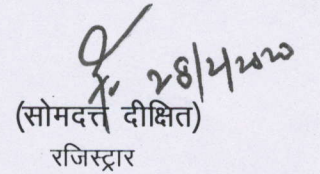 28/4/2020
(सोमदत्त दीक्षित)
रजिस्ट्रार